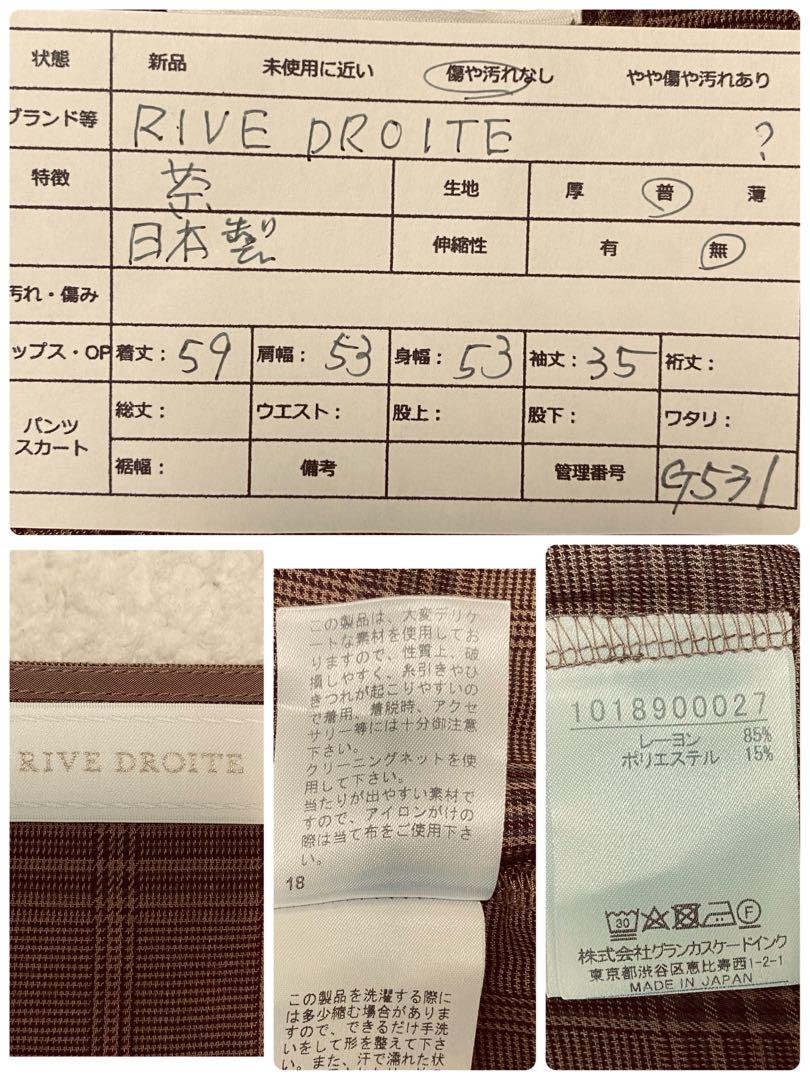 状態 新品 未使用に近い 傷や汚れなし やや傷や汚れあり
ブランド等 RIVE DROITE ?
特徴 茶 生地 厚 普 薄
日本製 伸縮性 有 無
汚れ・傷み
ップス・OP 着丈：59 肩幅：53 身幅：53 袖丈：35 裄丈：
パンツ
スカート
総丈： ウエスト： 股上： 股下： ワタリ：
裾幅： 備考 管理番号 G531
RIVE DROITE
この製品は、大変デリケ
ートな素材を使用してお
りますので、性質上、破
損しやすく、糸引きやひ
きつれが起こりやすいの
で着用、着脱時、アクセ
サリー等には十分御注意
下さい。
クリーニングネットを使
用して下さい。
当たりが出やすい素材で
すので、アイロンがけの
際は当て布をご使用下さ
い。
18
この製品を洗濯する際に
は多少縮む場合がありま
すので、できるだけ手洗
いをして形を整えて下さ
い。また、汗で濡れた状
1018900027
レーヨン 85%
ポリエステル 15%
30 F
株式会社グランカスケードインク
東京都渋谷区恵比寿西1-2-1
MADE IN JAPAN